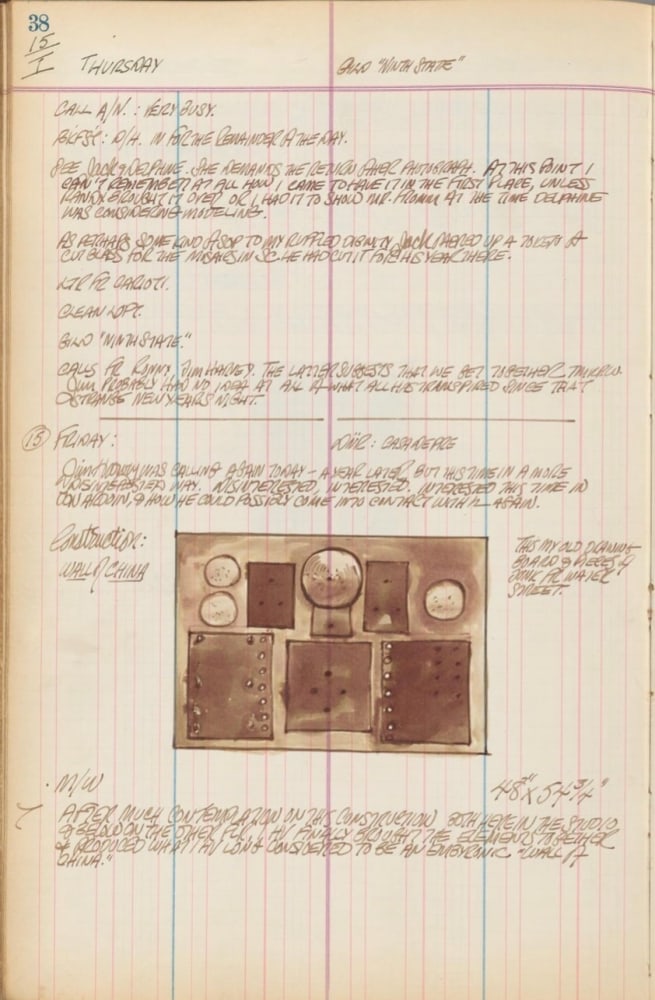 38
15
I
THURSDAY
BILD "NINTH STATE"
CALL A/N.: VERY BUSY.
BKFST: D/H. IN FOR THE REMAINDER OF THE DAY.
SEE Jack & DELPHINE. SHE DEMANDS THE RETURN OF HER PHOTOGRAPH. AT THIS POINT I
CAN'T REMEMBER AT ALL HOW I CAME TO HAVE IT IN THE FIRST PLACE, UNLESS
RANDY BROUGHT IT OVER OR I HAD IT TO SHOW MR. FROMM AT THE TIME DELPHINE
WAS CONSIDERING MODELING.
AS PERHAPS SOME KIND OF SOP TO MY RUFFLED DIGNITY Jack OFFERED UP A TOKEN OF
CUT GLASS FOR THE
IN SC. HE HAD CUT IT FOR HIS YEAR THERE.
LTR FR CARIOTI.
CLEAN LOFT.
BILD "NINTH STATE."
CALLS FR RONNY, Jim HARVEY. THE LATTER SUGGESTS THAT WE GET TOGETHER TMRRW.
Jim PROBABLY HAD NO IDEA AT ALL OF WHAT ALL HAS TRANSPIRED SINCE THAT
STRANGE NEW YEARS NIGHT.
15 FRIDAY:
DINR: CASA DEPRE
Jim Harvey WAS CALLING AGAIN TODAY – A YEAR LATER BUT THIS TIME IN A MORE
DISINTERESTED WAY. DISINTERESTED, INTERESTED. INTERESTED THIS TIME IN
DON ARDOIN, & HOW HE COULD POSSIBLY COME INTO CONTACT WITH AGAIN.
Construction:
WALL of CHINA
THIS MY OLD DRAWING
BOARD & PIECES OF
JUNK FR WATER
STREET.
M/W
48" X 54 3/4"
AFTER MUCH CONTEMPLATION ON THIS CONSTRUCTION BOTH HERE IN THE STUDIO
& BELOW ON THE OTHER FLR, I HV FINALLY BROUGHT THE ELEMENTS TOGETHER
& PRODUCED WHAT I HV LONG CONSIDERED TO BE AN EMBRYONIC "WALL OF
CHINA."